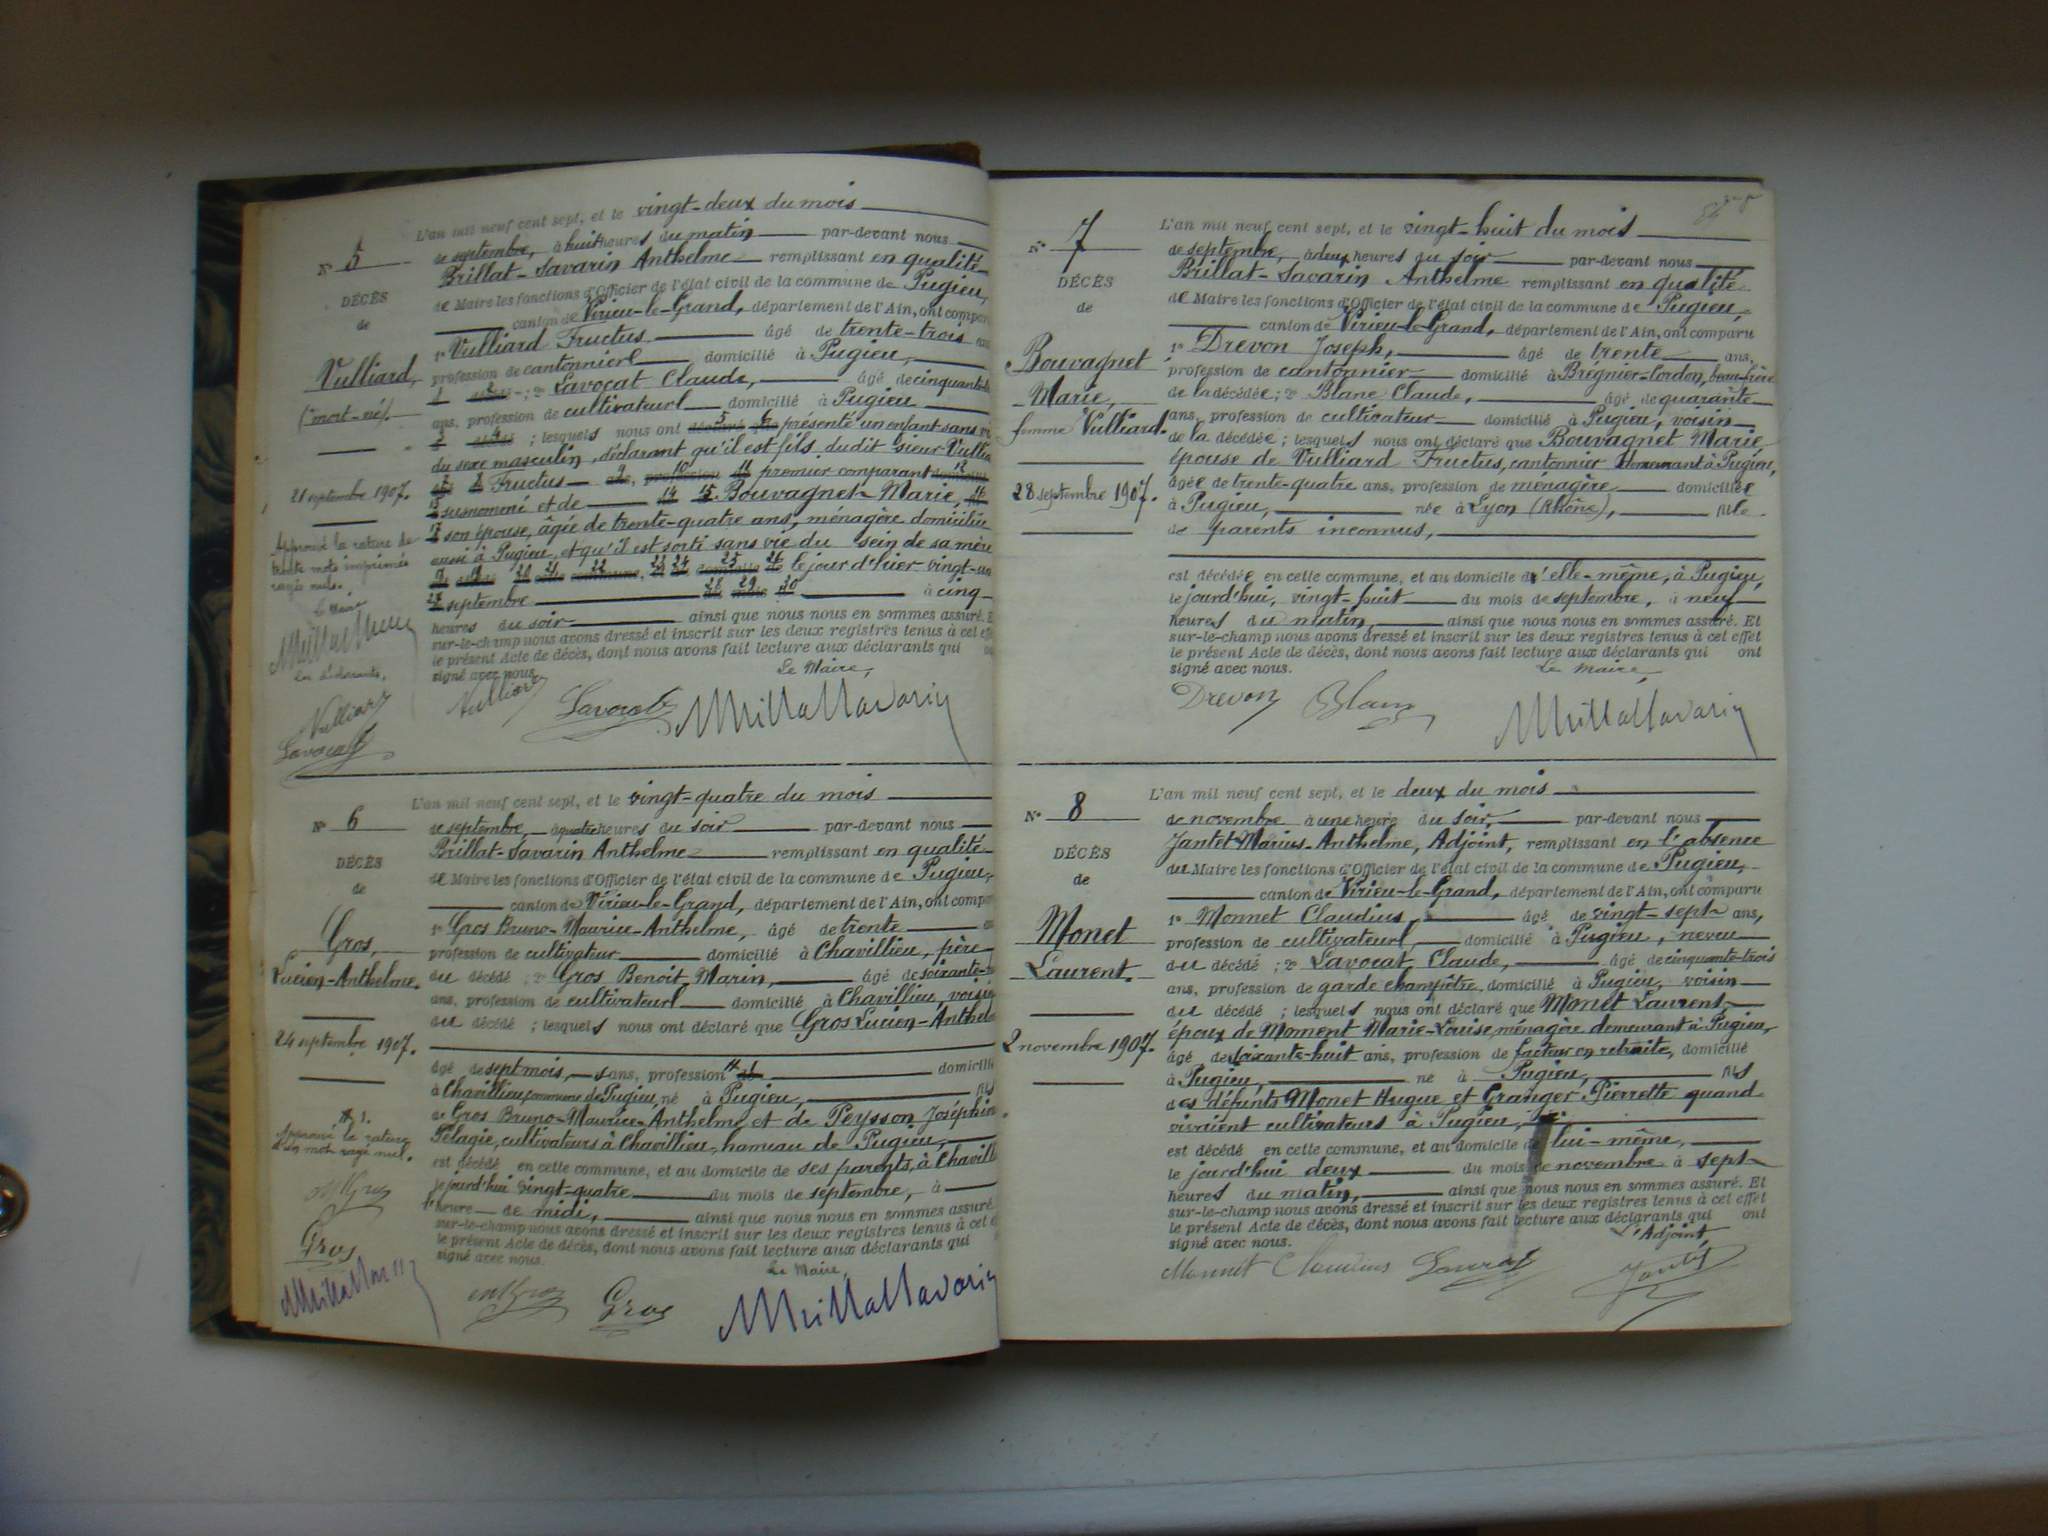 L'an mil neuf cent sept, et le vingt-deux du mois
de septembre, à huit heures du matin par-devant nous
Brillat-Savarin Anthelme remplissant en qualité
de Maire les fonctions d'Officier de l'état civil de la commune de Pugieu,
canton de Virieu-le-Grand, département de l'Ain, ont compar
1º Vulliard Fructus âgé de trente-trois ans
profession de cantonnier domicilié à Pugieu,
1 2 ; 2º Lavocat Claude, âgé de cinquante-
ans, profession de cultivateur domicilié à Pugieu
3 4 ; lesquels nous ont déclaré que présenté un enfant sans vi
du sexe masculin, déclarant qu'il est fils dudit sieur Vullia
Fructus ans, profession premier comparant domicilié
susnommé et de Bouvagnet Marie,
son épouse, âgée de trente-quatre ans, ménagère domiciliée
aussi à Pugieu, et qu'il est sorti sans vie du sein de sa mère
le jour d'hier vingt-un
septembre à cinq
heures du soir ainsi que nous nous en sommes assuré. E
sur-le-champ nous avons dressé et inscrit sur les deux registres tenus à cet eff
le présent Acte de décès, dont nous avons fait lecture aux déclarants qui
signé avec nous. Le Maire,
Vulliard Lavocat
Nº 5
DÉCÈS
de
Vulliard,
(mort-né).
21 septembre 1907.
Approuvé la rature de
trente mots imprimés
rayés nuls.
Le Maire
Les déclarants,
Vulliard
Lavocat
L'an mil neuf cent sept, et le vingt-quatre du mois
de septembre, à quatre heures du soir par-devant nous
Brillat-Savarin Anthelme remplissant en qualité
de Maire les fonctions d'Officier de l'état civil de la commune de Pugieu,
canton de Virieu-le-Grand, département de l'Ain, ont compar
1º Gros Bruno-Maurice-Anthelme, âgé de trente
profession de cultivateur domicilié à Chavillieu, père
du décédé ; 2º Gros Benoit Marin, âgé de soixante-
ans, profession de cultivateur domicilié à Chavillieu, voisin
du décédé ; lesquels nous ont déclaré que Gros Lucien-Anthel
âgé de sept mois, sans, profession domicilié
à Chavillieu, commune de Pugieu, né à Pugieu, fils
de Gros Bruno-Maurice-Anthelme et de Peysson Joséphine
Pélagie, cultivateurs à Chavillieu, hameau de Pugieu,
est décédé en cette commune, et au domicile de ses parents, à Chavill
le jourd'hui vingt-quatre du mois de septembre, à
l'heure de midi, ainsi que nous nous en sommes assuré.
sur-le-champ nous avons dressé et inscrit sur les deux registres tenus à cet e
le présent Acte de décès, dont nous avons fait lecture aux déclarants qui
signé avec nous. Le Maire,
Gros
Nº 6
DÉCÈS
de
Gros,
Lucien-Anthelme.
24 septembre 1907.
Approuvé la rature
d'un mot rayé nul.
Gros
L'an mil neuf cent sept, et le vingt-huit du mois
de septembre, à deux heures du soir par-devant nous
Brillat-Savarin Anthelme remplissant en qualité
de Maire les fonctions d'Officier de l'état civil de la commune de Pugieu,
canton de Virieu-le-Grand, département de l'Ain, ont comparu
1º Drevon Joseph, âgé de trente ans,
profession de cantonnier domicilié à Brégnier-Cordon, beau-frère
de la décédée ; 2º Blanc Claude, âgé de quarante
ans, profession de cultivateur domicilié à Pugieu, voisin
de la décédée ; lesquels nous ont déclaré que Bouvagnet Marie
épouse de Vulliard Fructus, cantonnier demeurant à Pugieu,
âgée de trente-quatre ans, profession de ménagère domiciliée
à Pugieu, née à Lyon (Rhône), fille
de parents inconnus,
est décédée en cette commune, et au domicile d'elle-même, à Pugieu,
le jourd'hui, vingt-huit du mois de septembre, à neuf
heures du matin, ainsi que nous nous en sommes assuré. Et
sur-le-champ nous avons dressé et inscrit sur les deux registres tenus à cet effet
le présent Acte de décès, dont nous avons fait lecture aux déclarants qui ont
signé avec nous. Le Maire,
Drevon Blanc
Nº 7
DÉCÈS
de
Bouvagnet
Marie,
femme Vulliard.
28 septembre 1907.
L'an mil neuf cent sept, et le deux du mois
de novembre à une heure du soir, par-devant nous
Jantet Marius-Anthelme, Adjoint, remplissant en l'absence
du Maire les fonctions d'Officier de l'état civil de la commune de Pugieu,
canton de Virieu-le-Grand, département de l'Ain, ont comparu
1º Monnet Claudius, âgé de vingt-sept ans,
profession de cultivateur, domicilié à Pugieu, neveu
du décédé ; 2º Lavocat Claude, âgé de cinquante-trois
ans, profession de garde champêtre, domicilié à Pugieu, voisin
du décédé ; lesquels nous ont déclaré que Monet Laurent
époux de Moment Marie-Louise, ménagère demeurant à Pugieu,
âgé de soixante-huit ans, profession de facteur en retraite, domicilié
à Pugieu, né à Pugieu, fils
des défunts Monet Hugue et Granger Pierrette quand
vivaient cultivateurs à Pugieu,
est décédé en cette commune, et au domicile de lui-même,
le jourd'hui deux du mois de novembre à sept
heures du matin, ainsi que nous nous en sommes assuré. Et
sur-le-champ nous avons dressé et inscrit sur les deux registres tenus à cet effet
le présent Acte de décès, dont nous avons fait lecture aux déclarants qui ont
signé avec nous. L'Adjoint,
Monnet Claudius Lavocat Jantet
Nº 8
DÉCÈS
de
Monet
Laurent.
2 novembre 1907.